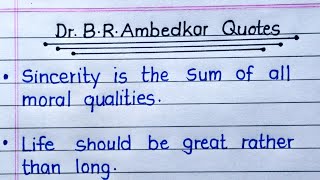 Dr. B.R. Ambedkar Quotes
• Sincerity is the sum of all
moral qualities.
• Life should be great rather
than long.